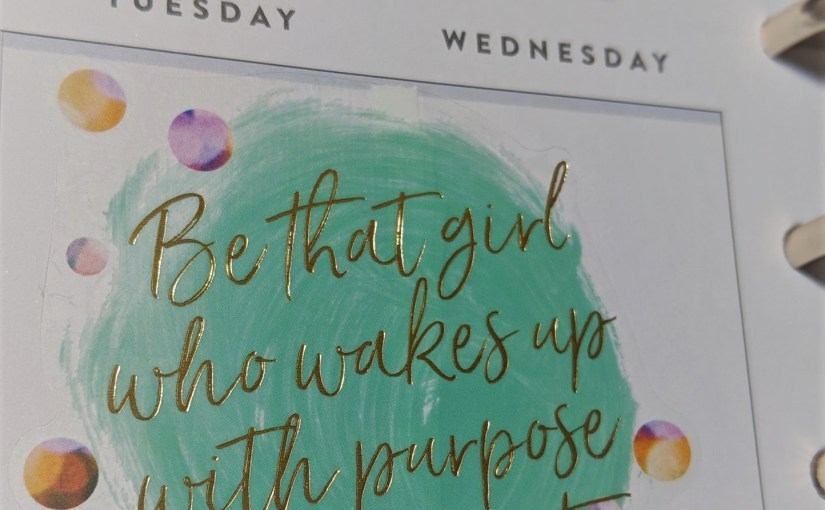 TUESDAY
WEDNESDAY
Be that girl
who wakes up
with purpose